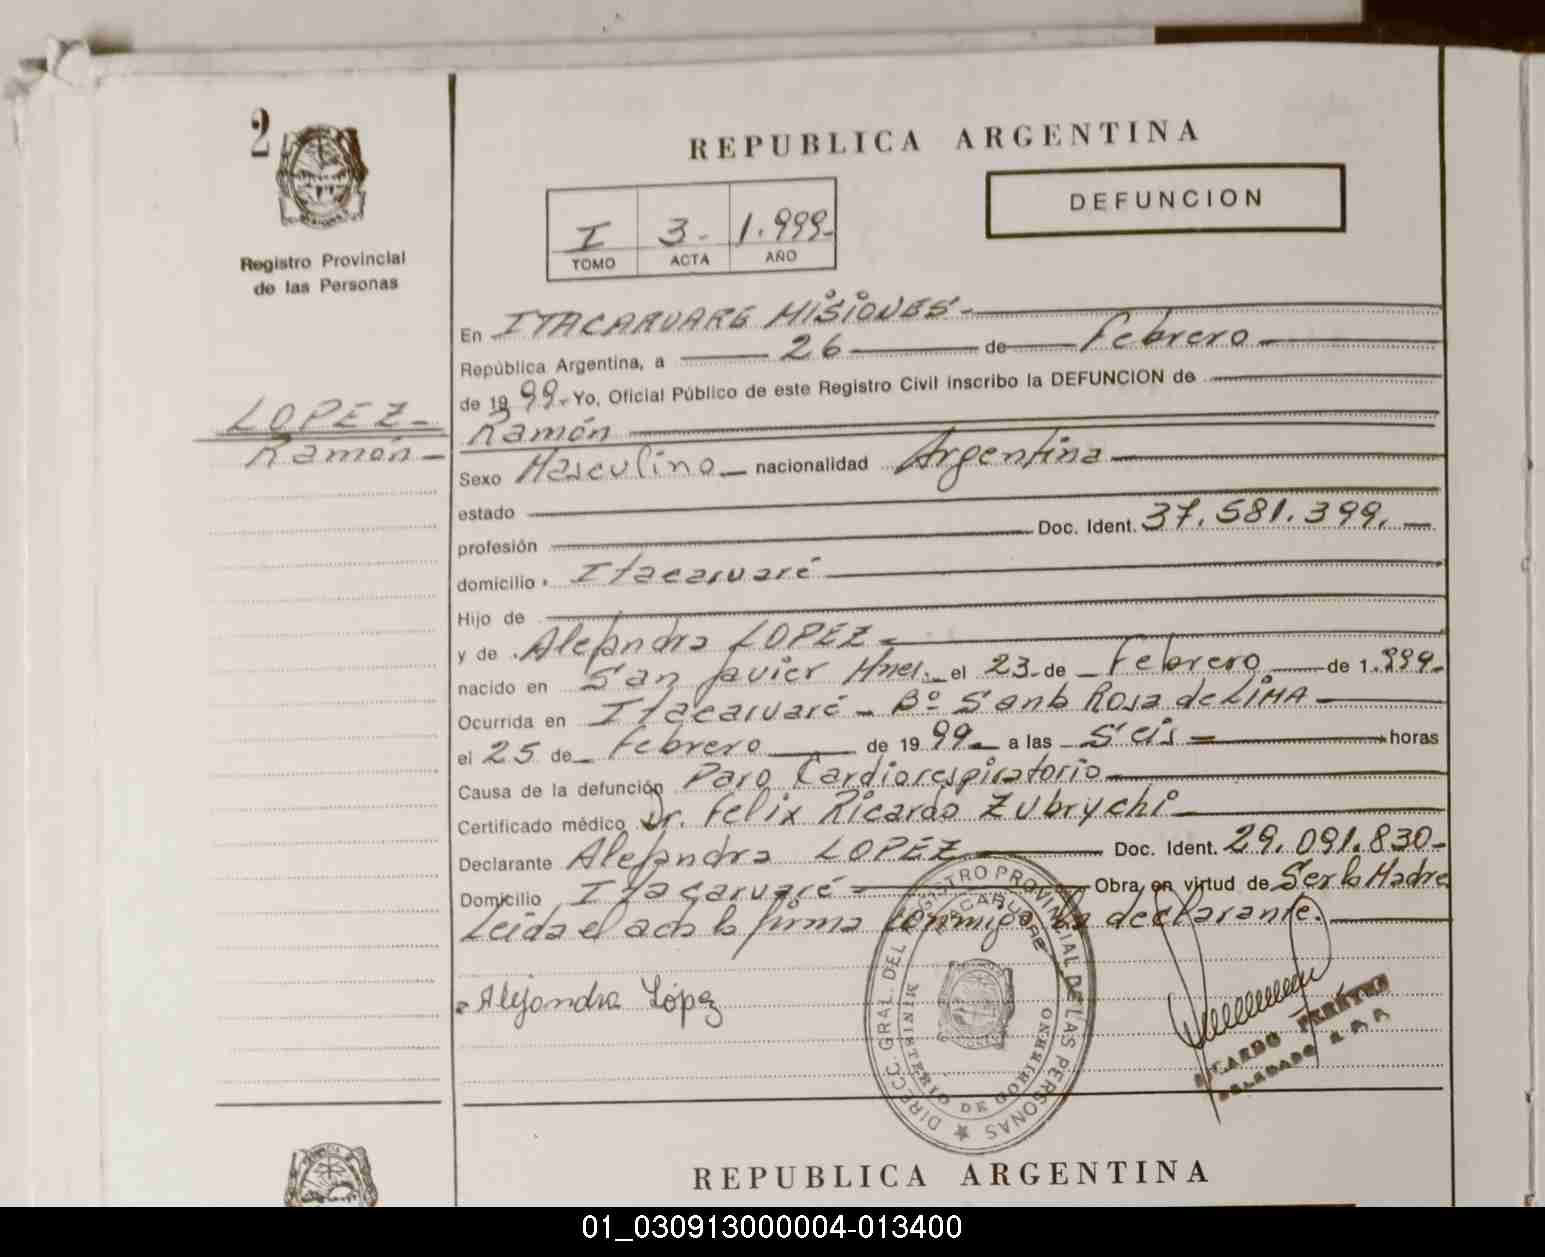 2
REPUBLICA ARGENTINA
DEFUNCION
I 3- 1.999-
TOMO ACTA AÑO
Registro Provincial
de las Personas
En ITACARUARE MISIONES-
República Argentina, a 26 de Febrero
de 1999- Yo, Oficial Público de este Registro Civil inscribo la DEFUNCION de
LOPEZ-
Ramón
Ramón-
Sexo Masculino nacionalidad Argentina
estado
profesión Doc. Ident. 37.581.399.
domicilio Itacaruaré
Hijo de
y de Alejandra LOPEZ-
nacido en San Javier Mnes. el 23 de Febrero de 1.999-
Ocurrida en Itacaruaré - Bº Santa Rosa de LIMA-
el 25 de Febrero de 1999 a las Seis horas
Causa de la defunción Paro Cardiorespiratorio
Certificado médico Dr. Felix Ricardo Zubrychi
Declarante Alejandra LOPEZ Doc. Ident. 29.091.830-
Domicilio Itacaruaré Obra en virtud de Ser la Madre
Leída el acta la firma conmigo la declarante.
Alejandra López
DIRECC. GRAL. DEL REGISTRO PROVINCIAL DE LAS PERSONAS
ITACARUARE
MINISTERIO DE GOBIERNO
RICARDO
DELEGADO
REPUBLICA ARGENTINA
01_030913000004-013400